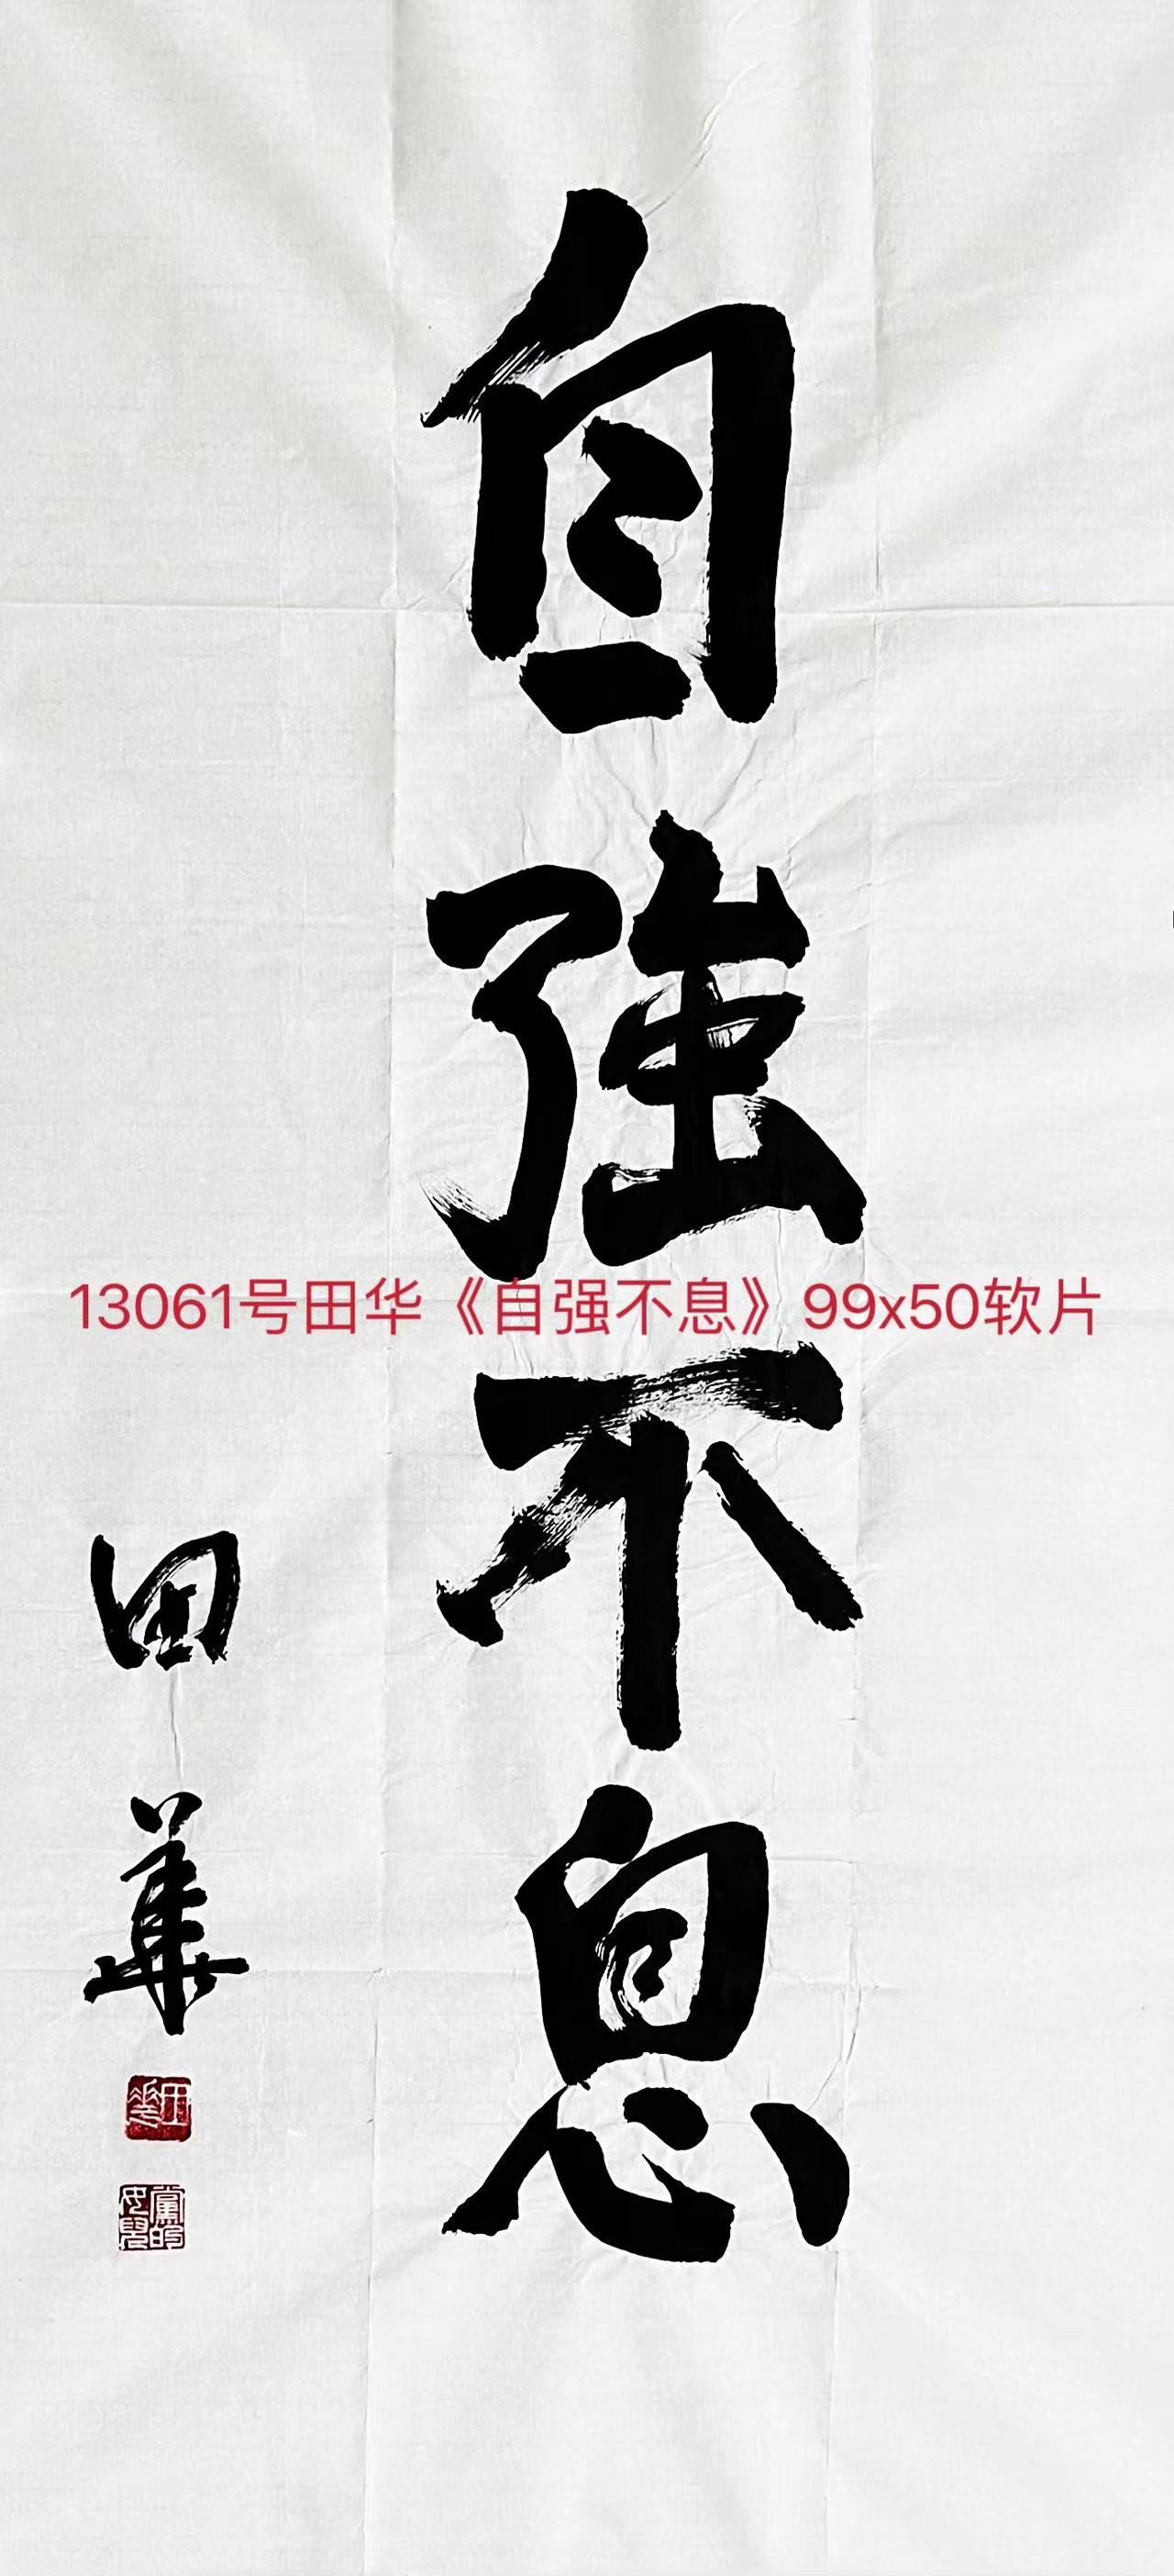 自強不息
13061号田华《自强不息》99x50软片
田華
田華
黨的女兒